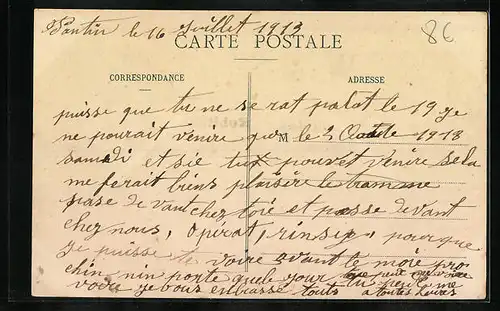 Pantin le 16 Juillet 1913
86
CARTE POSTALE
CORRESPONDANCE
ADRESSE
puisse que tu ne se rat pala le 19 je
ne pourait venire que M le 2 1913
samedi et sie tu pouvet venire sela
me ferait biens plaisire le tramme
pase devant chez toie et passe devant
chez nous, pourque
je puisse te voire avant le moie pro
chin nin porte quele jour
voire je vous enbrasse touts
tu peut me
a toutes heures